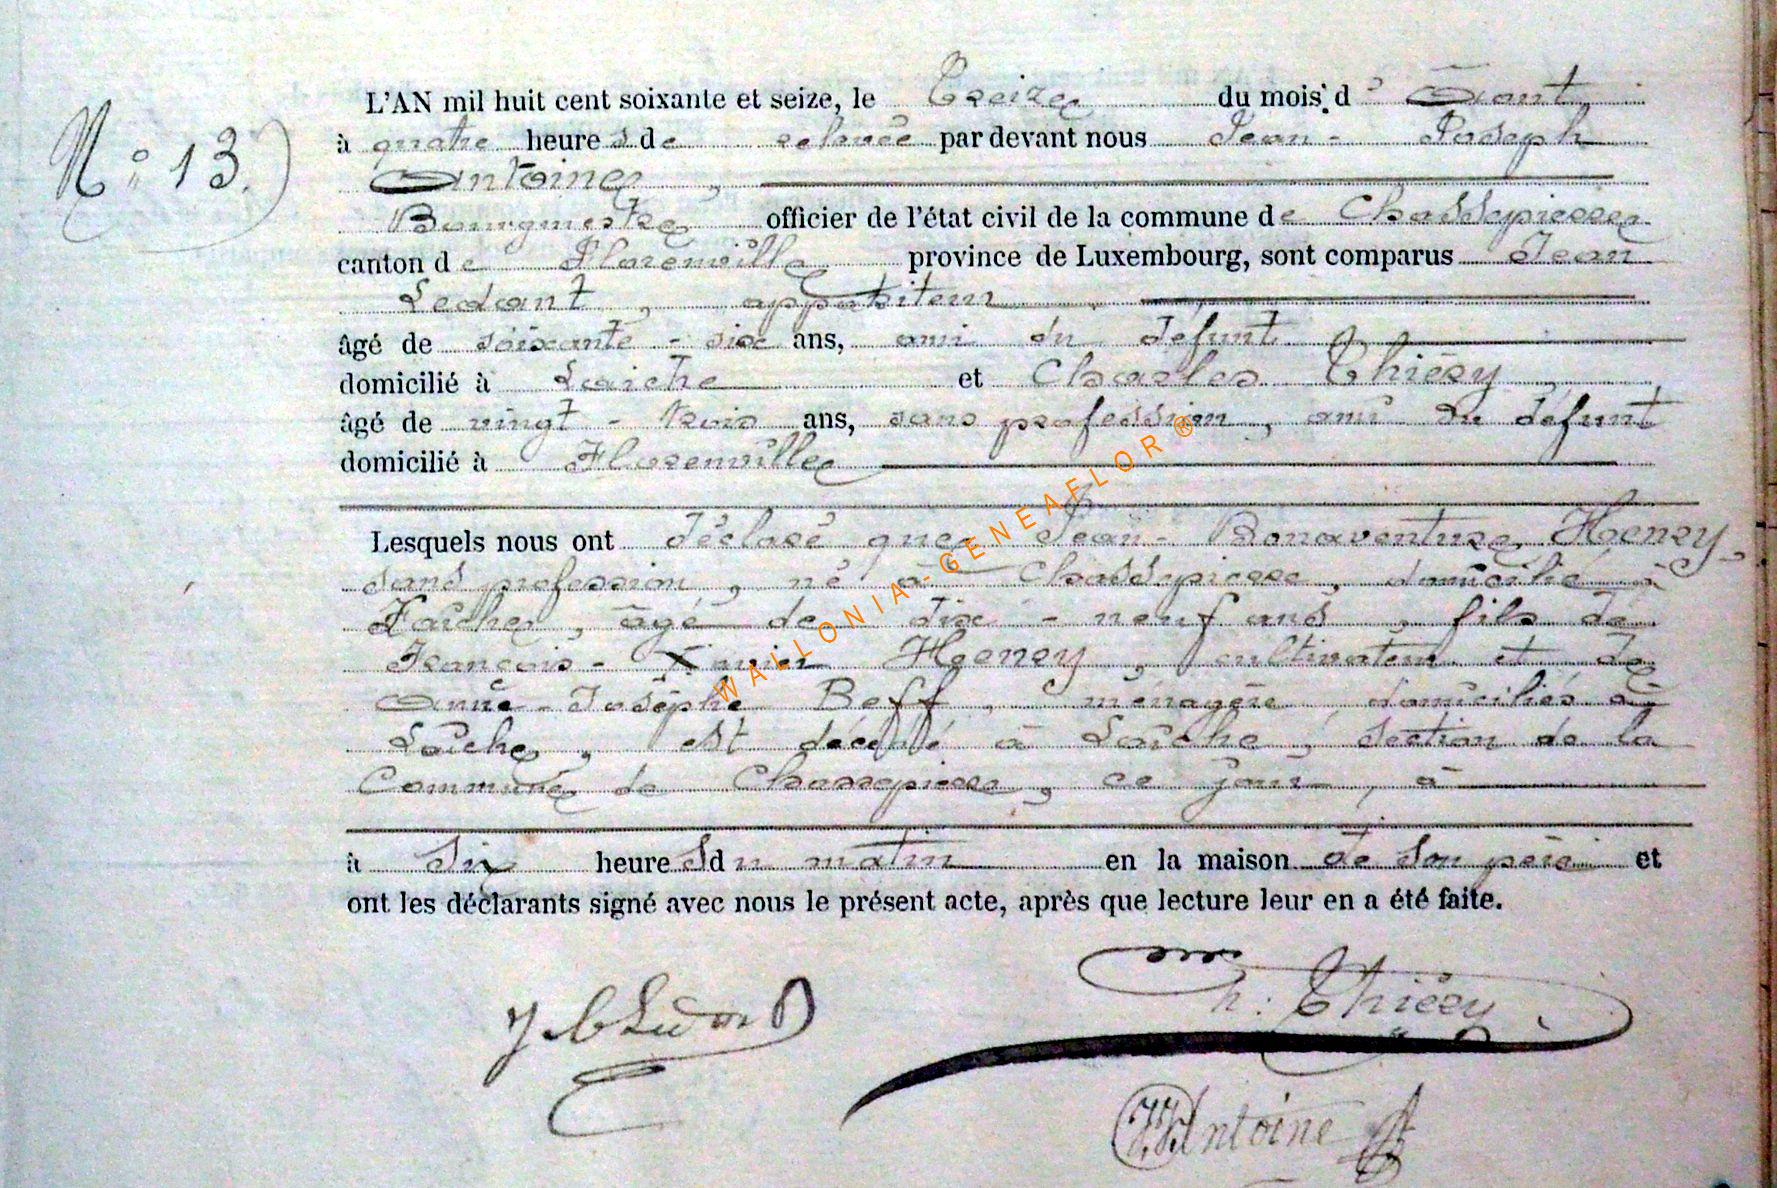 N° 13.
L'AN mil huit cent soixante et seize, le Treize du mois d'Aout
à quatre heures de relevée par devant nous Jean-Joseph
Antoine,
Bourgmestre officier de l'état civil de la commune de Chassepierre
canton de Florenville province de Luxembourg, sont comparus Jean
Ledant,
âgé de soixante-six ans, ami du défunt
domicilié à Laiche et Charles Thiéry,
âgé de vingt-trois ans, sans profession, ami du défunt
domicilié à Florenville
Lesquels nous ont déclaré que Jean-Bonaventure Henry
sans profession, né à Chassepierre, domicilié à
Laiche, âgé de dix-neuf ans, fils de
François-Xavier Henry, cultivateur et de
Anne-Josèphe Beff, ménagère, domiciliés à
Laiche, est décédé à Laiche, section de la
Commune de Chassepierre, ce jour, à
à Six heures du matin en la maison de son père et
ont les déclarants signé avec nous le présent acte, après que lecture leur en a été faite.
Thiéry
JJ Antoine
WALLONIA-GENEAFLOR ®